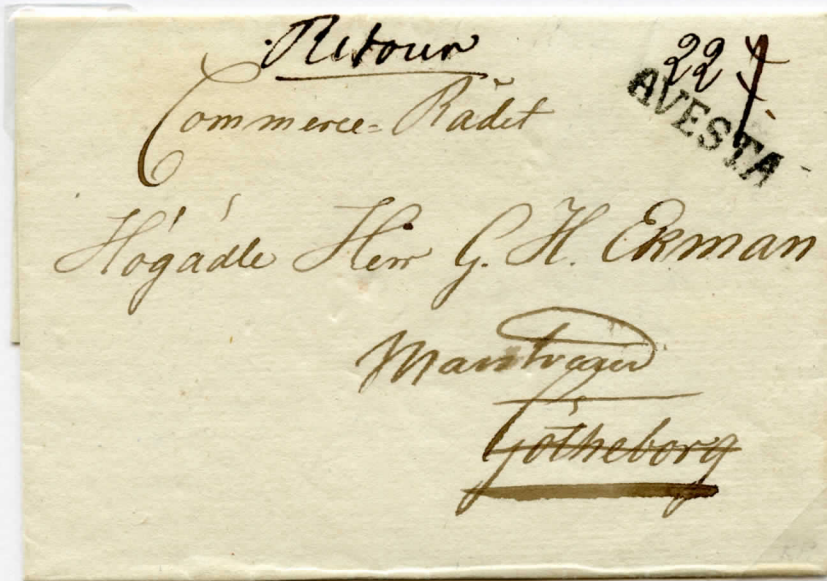 Retour
22
AVESTA
Commerce=Rådet
Högädle Herr G. H. Ekman
Marstrand
Götheborg